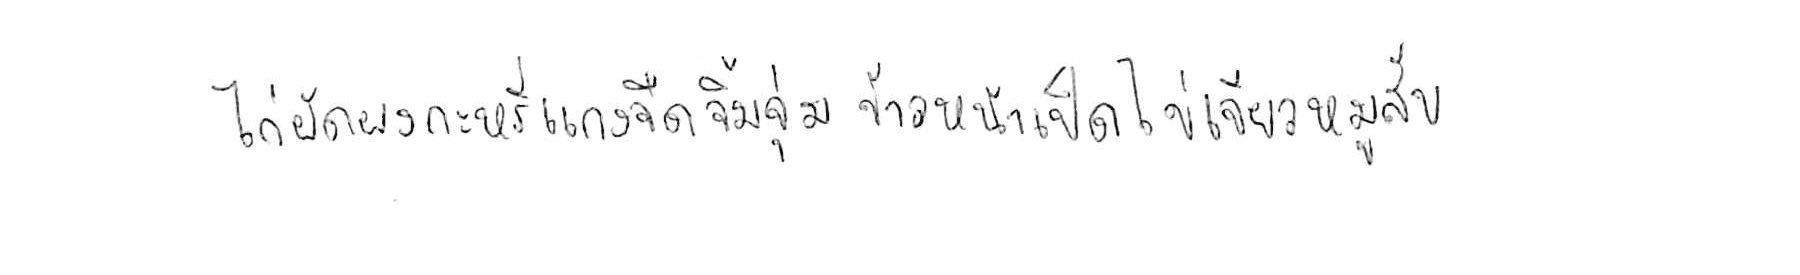 ไก่ผัดผงกะหรี่แกงจืดจิ้มจุ่ม ข้าวหน้าเป็ดไข่เจียวหมูสับ